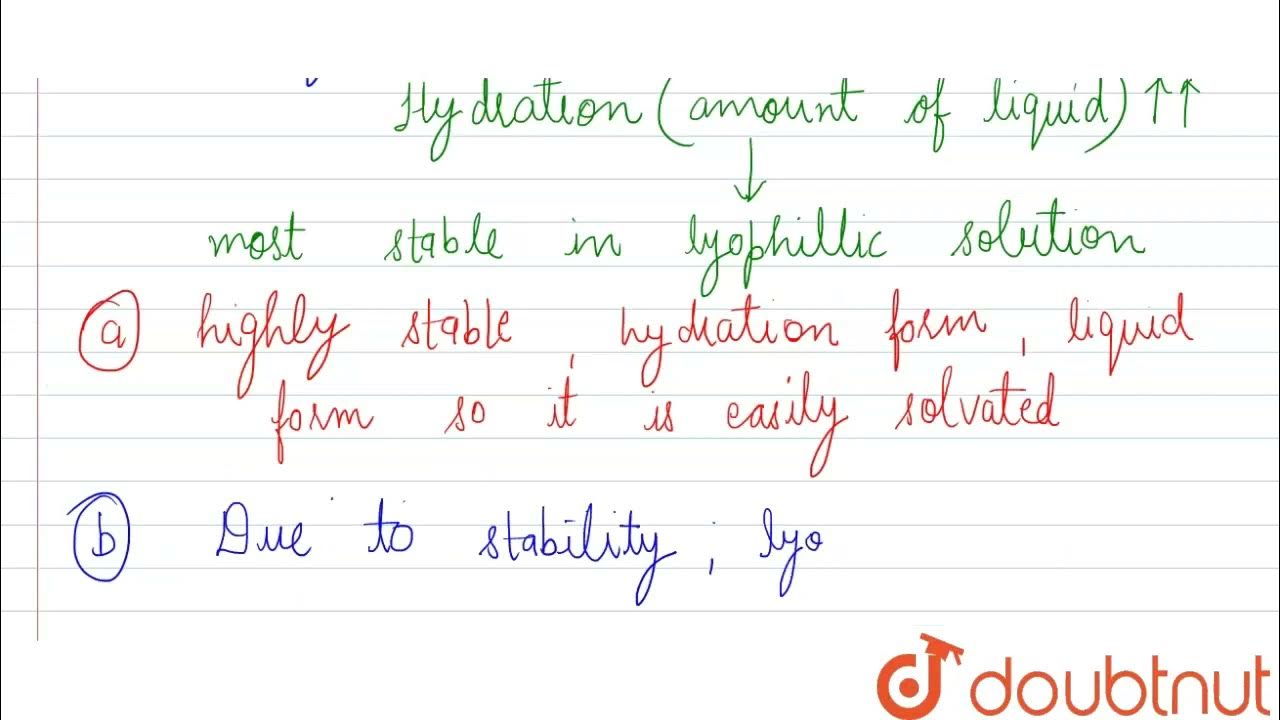 Hydration (amount of liquid) ↑↑
↓
most stable in lyophillic solution
a highly stable, hydration form, liquid
form so it is easily solvated
b Due to stability, lyo
doubtnut